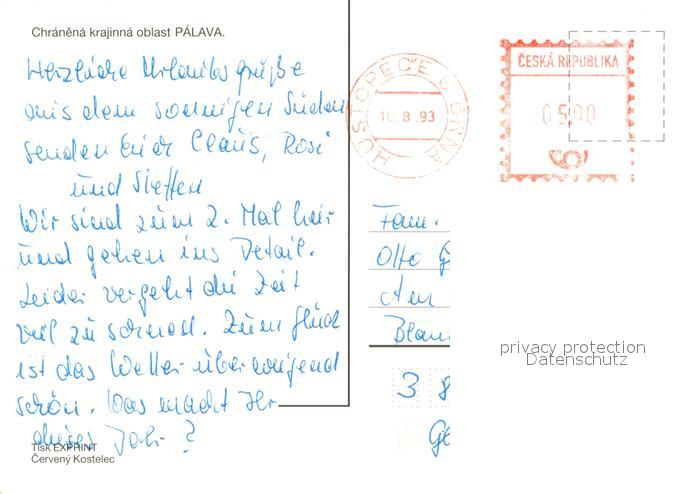 Chráněná krajinná oblast PÁLAVA.
Herzliche Urlaubsgrüße
aus dem sonnigen Süden
senden Euch Claus, Rosi
und Steffen
Wir sind zum 2. Mal hier
und gehen ins Detail.
Leider vergeht die Zeit
viel zu schnell. Zum Glück
ist das Wetter überwiegend
schön. Was macht Ihr
dieses Jahr?
Tisk EXPRINT
Červený Kostelec
HUSTOPEČE U BRNA
16.8.93
ČESKÁ REPUBLIKA
0500
Fam.
Otto G
Am
Blan
3 8
privacy protection
Datenschutz